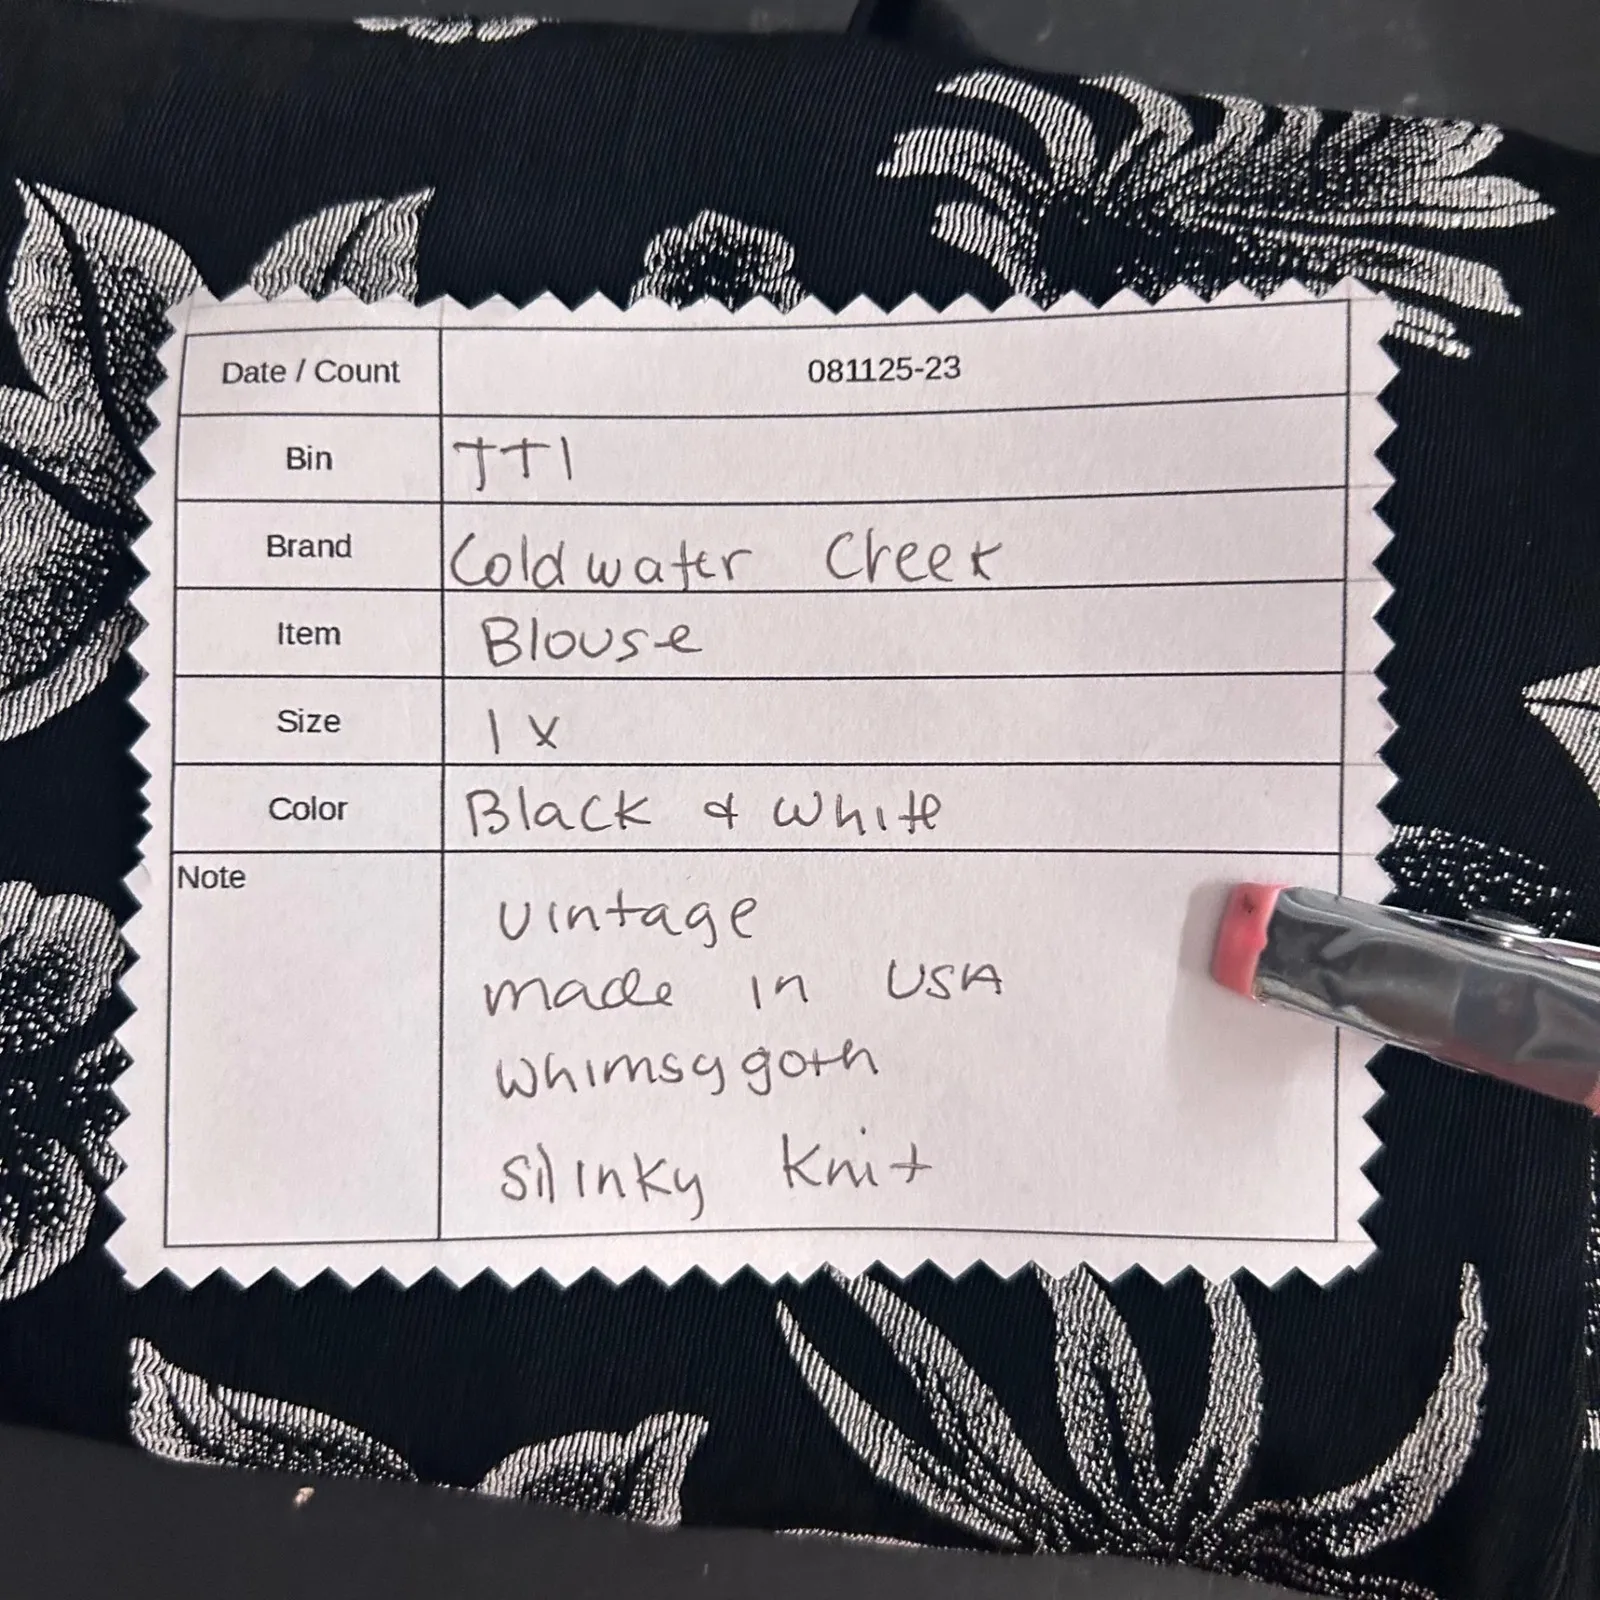 Date / Count 081125-23
Bin TT1
Brand Coldwater Creek
Item Blouse
Size 1X
Color Black & White
Note
vintage
made in USA
whimsygoth
slinky knit